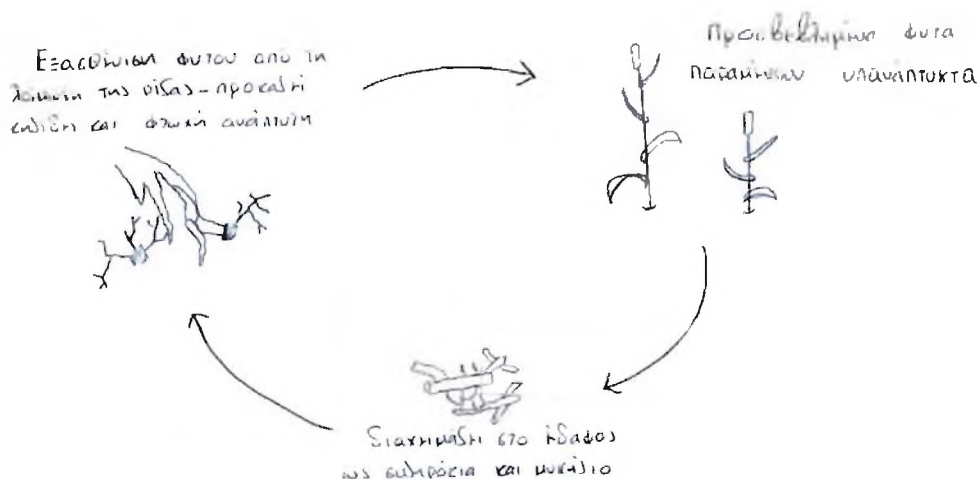 Εξασθένιση φυτού από τη
λοίμωξη της ρίζας - προκαλεί
κηλίδες και φτωχή ανάπτυξη
Προσβεβλημένα φυτά
παραμένουν υπανάπτυκτα
Διαχειμάζει στο έδαφος
ως σκληρώτια και μυκήλιο